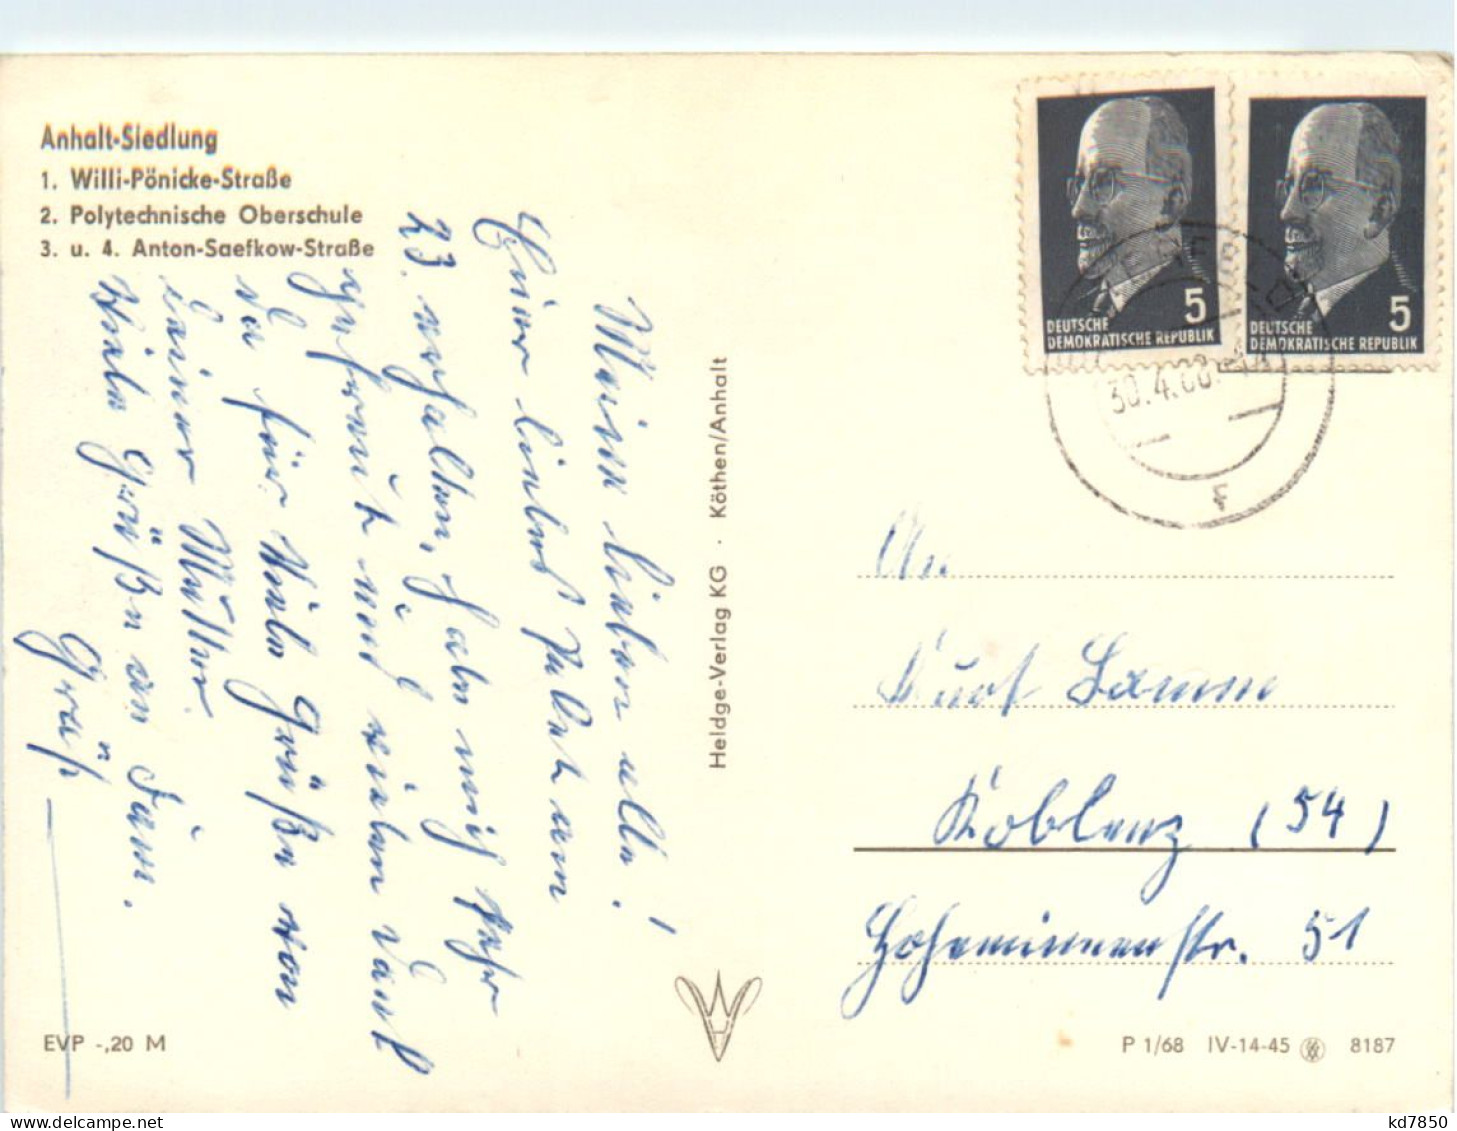 Anhalt-Siedlung
1. Willi-Pönicke-Straße
2. Polytechnische Oberschule
3. u. 4. Anton-Saefkow-Straße
Meine lieben alle!
Euer liebes Paket am
23. erhalten, habe mich sehr
gefreut und vielen Dank
da für Viele Grüße von
Deiner Mutter
Viele Grüße an Fam.
Heldge-Verlag KG · Köthen/Anhalt
EVP -,20 M
5
DEUTSCHE
DEMOKRATISCHE REPUBLIK
5
DEUTSCHE
DEMOKRATISCHE REPUBLIK
30.4.68
An
Kurt
Koblenz (54)
51
P 1/68 IV-14-45 8187
kd7850